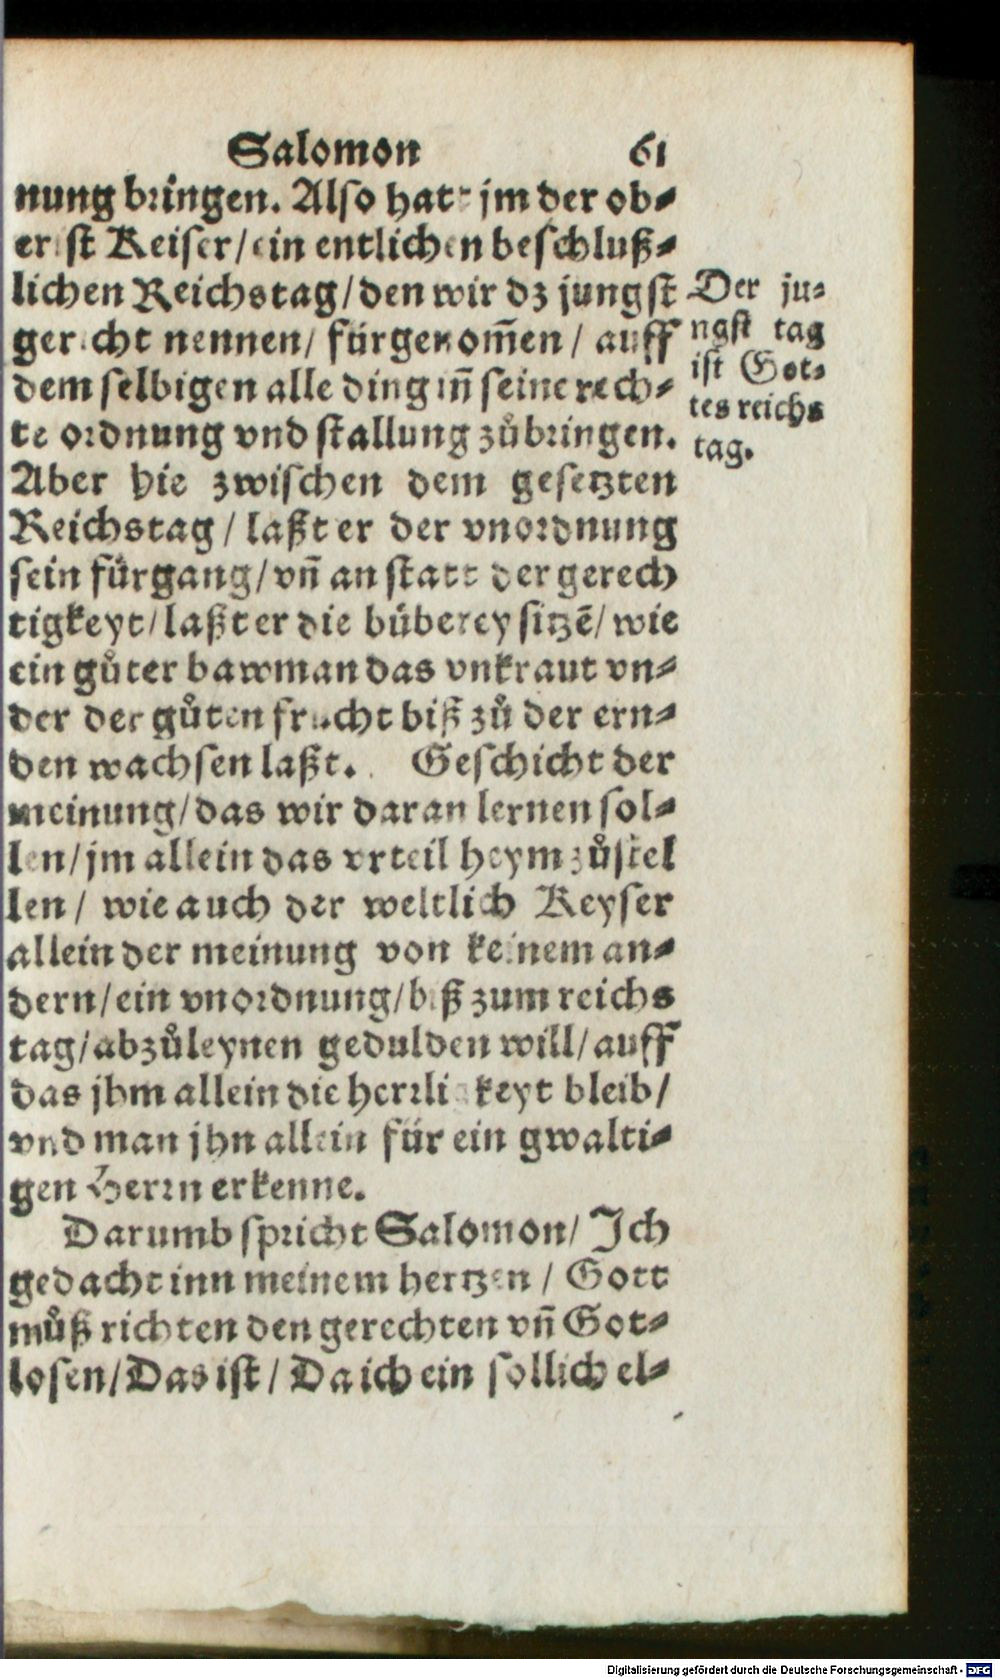 Salomon 61
nung bringen. Also hatt jm der ob⸗
erist Keiser/ein entlichen beschluß⸗
lichen Reichstag/den wir dz jungst
gericht nennen/ fürgenom̃en / auff
dem selbigen alle ding in̄ seine rech⸗
te ordnung vnd stallung zůbringen.
Aber hie zwischen dem gesetzten
Reichstag / laßt er der vnordnung
sein fürgang/vn̄ an statt der gerech
tigkeyt/laßt er die büberey sitzē/wie
ein gůter bawman das vnkraut vn⸗
der der gůten frucht biß zů der ern⸗
den wachsen laßt. Geschicht der
meinung/das wir daran lernen sol⸗
len/jm allein das vrteil heym zůstel
len / wie auch der weltlich Keyser
allein der meinung von keinem an⸗
dern/ein vnordnung/biß zum reichs
tag/abzůleynen gedulden will/auff
das jhm allein die herrligkeyt bleib/
vnd man jhn allein für ein gwalti⸗
gen Herrn erkenne.
Darumb spricht Salomon/ Ich
gedacht inn meinem hertzen / Gott
můß richten den gerechten vn̄ Got⸗
losen/Das ist / Da ich ein sollich el⸗
Der ju⸗
ngst tag
ist Got⸗
tes reichs
tag.
Digitalisierung gefördert durch die Deutsche Forschungsgemeinschaft - DFG